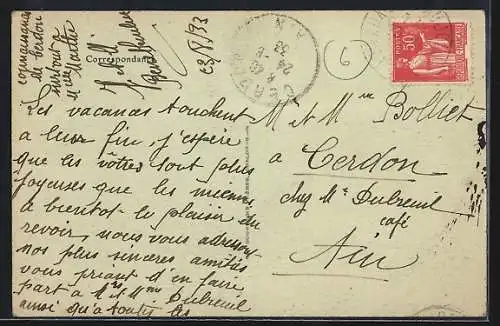 Correspondance
23/8/33
Les vacances touchent
à leur fin, j'espère
que les vôtres sont plus
joyeuses que les miennes
à bientôt le plaisir du
revoir, nous vous adressons
nos plus sincères amitiés
vous priant d'en faire
part à Mrs et Mme Dubreuil
ainsi qu'à toutes les
connaissances
de Cerdon
surtout à
Martre
M et Mme Bolliet
à Cerdon
chez Mr Dubreuil
café
Ain
6
POSTES
50c
24 - 8
33